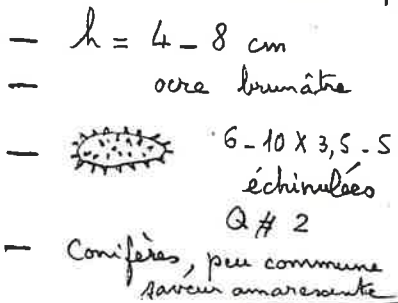 — h = 4 – 8 cm
— ocre brunâtre
— 6-10 X 3,5-5
échinulées
Q # 2
— Conifères, peu commune
saveur amarescente